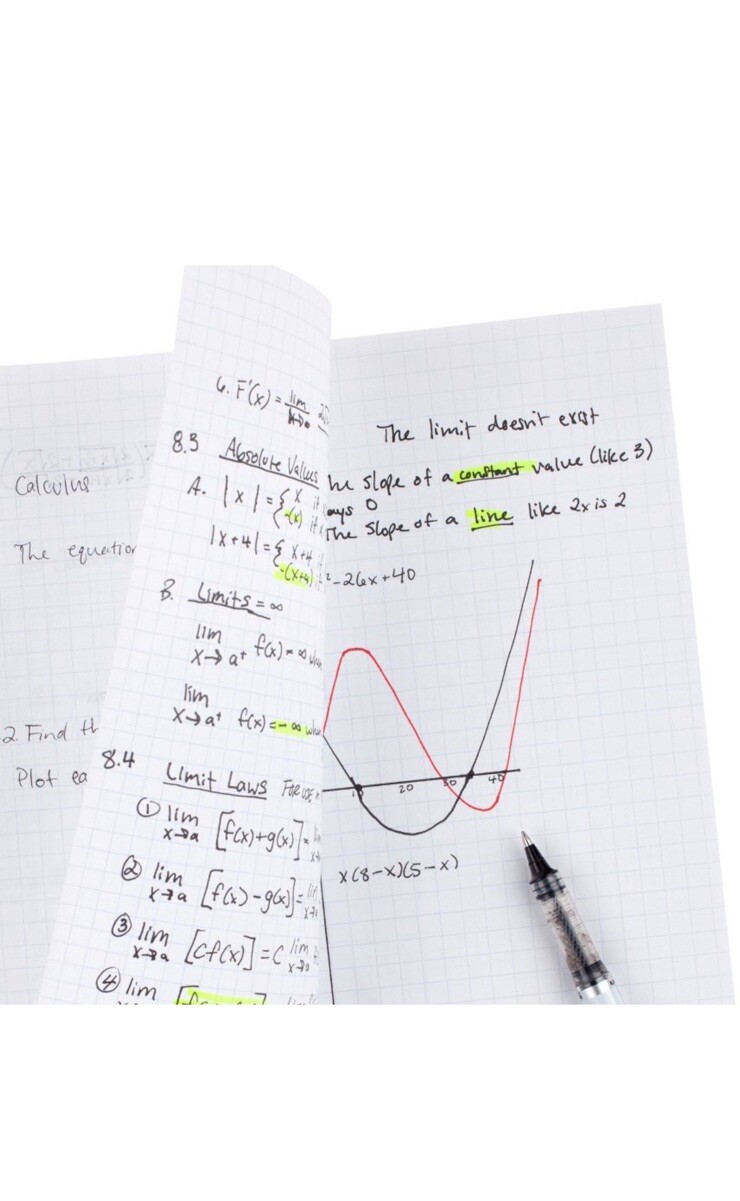 Calculus
The equation
2. Find th
Plot ea
6. F'(x) = lim
8.3 Absolute Values
A. |x| = { x if
-(x) if
|x+4| = { x+4 if
-(x+4) if
B. Limits = ∞
lim
x→a⁺ f(x) = ∞ when
lim
x→a⁺ f(x) = -∞ when
8.4 Limit Laws For use
① lim
x→a [f(x)+g(x)] =
② lim
x→a [f(x)-g(x)] = lim
③ lim
x→a [Cf(x)] = C lim
④ lim
The limit doesn't exist
he slope of a constant value (like 3)
ays 0
The slope of a line like 2x is 2
²-26x+40
10 20 30 40
x(8-x)(5-x)